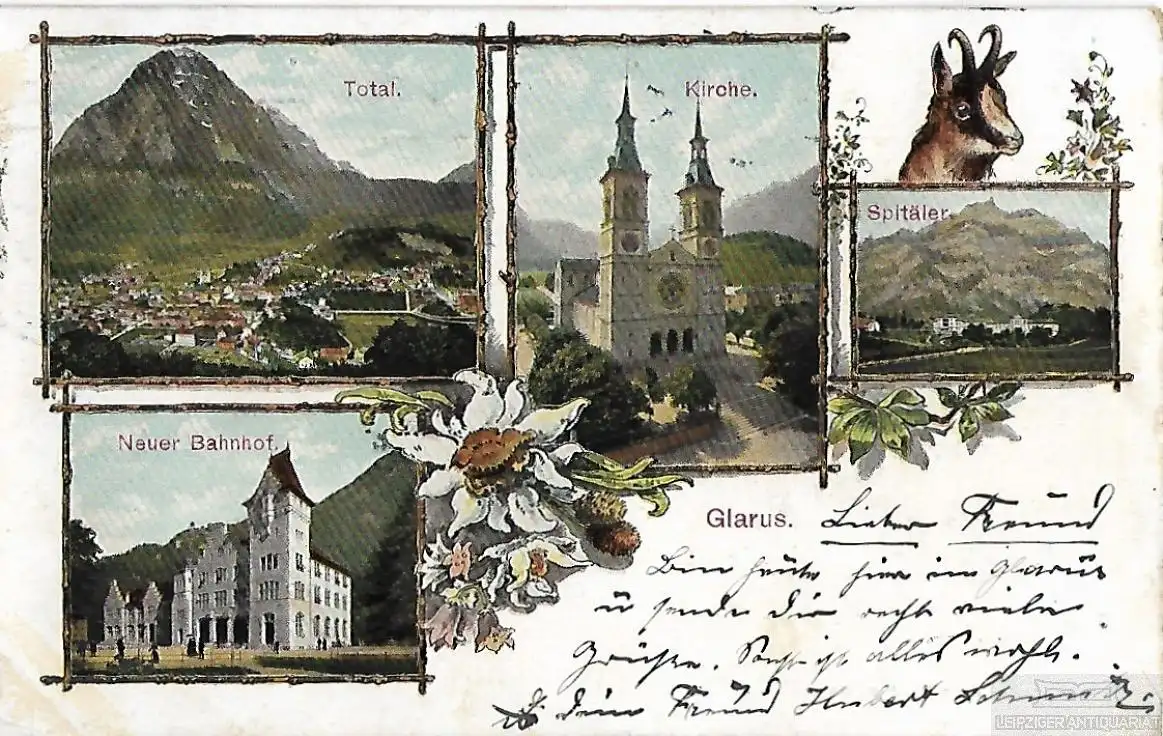 Total.
Kirche.
Spitäler.
Neuer Bahnhof.
Glarus.
Lieber Freund
Bin heute hier in Glarus
u sende Dir recht viele
Grüsse. Sonst ist alles wohl.
dein Freund Herbert
LEIPZIGER ANTIQUARIAT